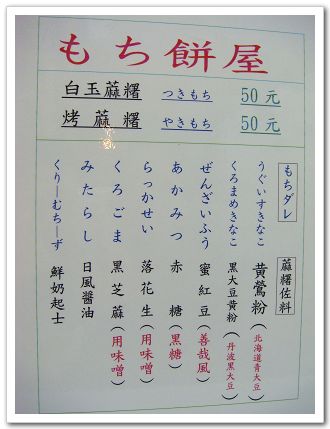 もち餅屋
白玉蔴糬 つきもち 50元
烤蔴糬 やきもち 50元
もちダレ 蔴糬佐料
うぐいすきなこ 黄鶯粉(北海道青大豆)
くろまめきなこ 黑大豆黄粉(丹波黒大豆)
ぜんざいふう 蜜紅豆(善哉風)
あかみつ 赤糖(黑糖)
らっかせい 落花生(用味噌)
くろごま 黑芝蔴(用味噌)
みたらし 日風醬油
くりーむちーず 鮮奶起士